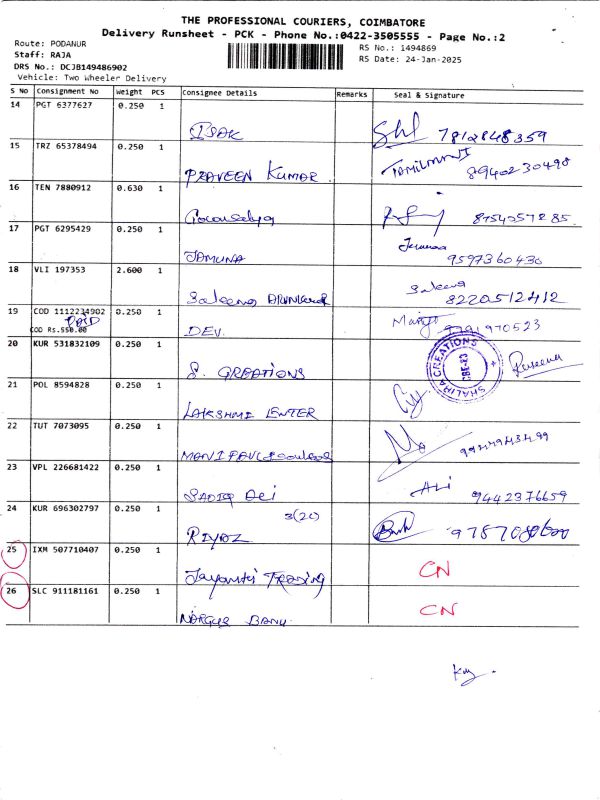 THE PROFESSIONAL COURIERS, COIMBATORE
Delivery Runsheet - PCK - Phone No.:0422-3505555 - Page No.:2
Route: PODANUR
Staff: RAJA
DRS No.: DCJB149486902
Vehicle: Two Wheeler Delivery
RS No.: 1494869
RS Date: 24-Jan-2025
S No Consignment No Weight PCS Consignee Details Remarks Seal & Signature
14 PGT 6377627 0.250 1
ISAK 7812848359
15 TRZ 65378494 0.250 1
PRAVEEN KUMAR 8940230498
16 TEN 7880912 0.630 1
8754057285
17 PGT 6295429 0.250 1
JAMUNA 9597360430
18 VLI 197353 2.600 1
Saleena 8220512412
19 COD 1112234902 0.250 1
PAID
COD Rs.550.00 DEV. 9791970523
20 KUR 531832109 0.250 1
S. CREATIONS SHALIRA CREATIONS CBE-23
21 POL 8594828 0.250 1
LAKSHMI ENTER
22 TUT 7073095 0.250 1
23 VPL 226681422 0.250 1
SADIQ Ali Ali 9442376659
24 KUR 696302797 0.250 1
RIYAZ
25 IXM 507710407 0.250 1
Jayanthi TRADING CN
26 SLC 911181161 0.250 1
NARGUS BANU CN